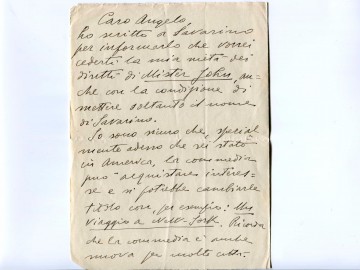 Caro Angelo,
ho scritto a Savarino
per informarlo che vorrei
cederti la mia metà dei
diritti di Mister John, an-
che con la condizione di
mettere soltanto il nome
di Savarino.
Io sono sicuro che, special
mente adesso che sei stato
in America, la commedia
può acquistare interes-
se e si potrebbe cambiarle
titolo con, per esempio: Un
viaggio a New-York. Ricorda
che la commedia è anche
nuova per molte città.